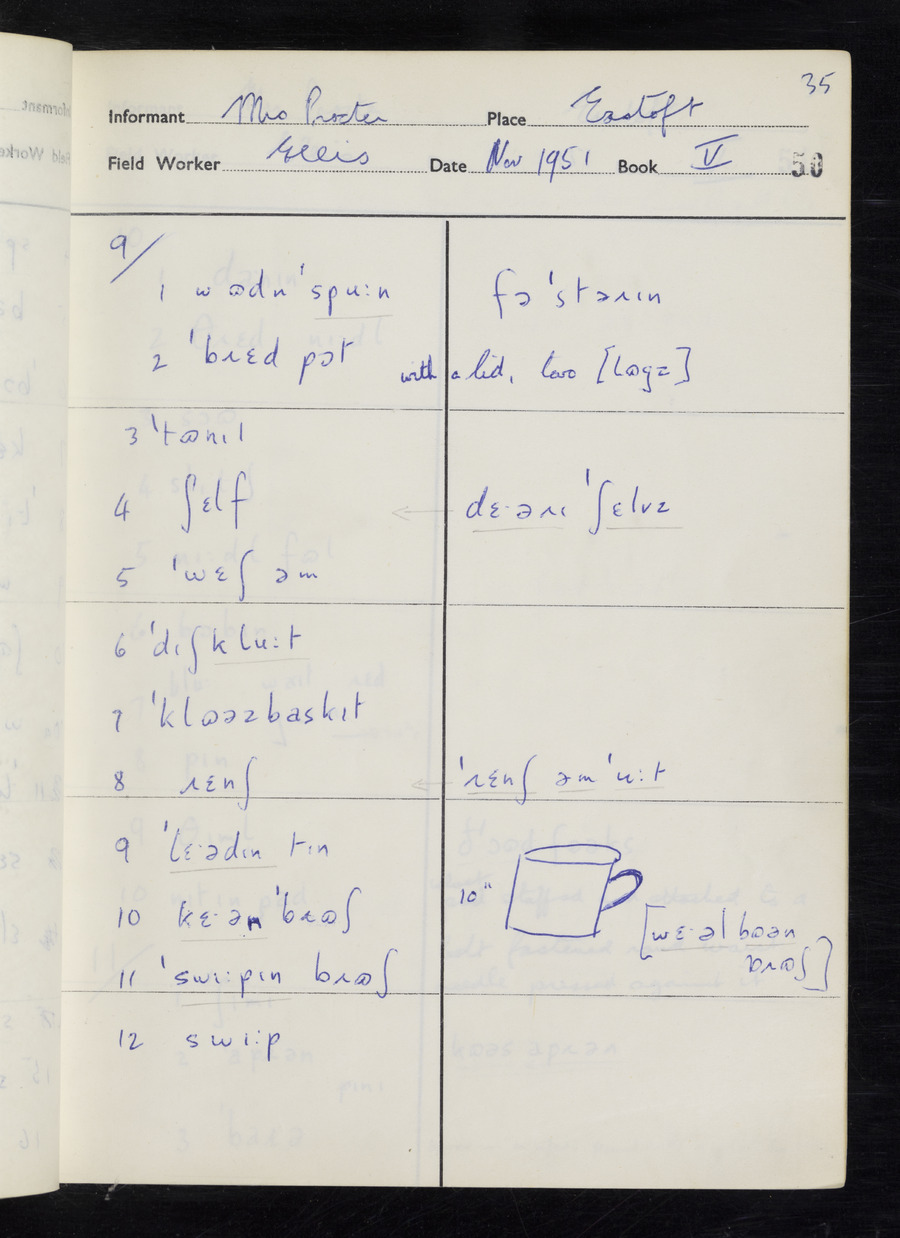 35
Informant Mrs Procter Place Eastoft
Field Worker Ellis Date Nov 1951 Book V 50
9/
1 wɷdn'spu:n fə'stəɹɪn
2 'bɹɛd pɔt with a lid, two [lɷgz]
3 'tɷnɪl
4 ʃɛlf ← dɛ·əɹɪ 'ʃɛlvz
5 'wɛʃ əm
6 'dɪʃklu:t
7 'klɷəzbaskɪt
8 ɹɛnʃ ← 'ɹɛnʃ əm 'u:t
9 'lɛ·ədɪn tɪn
10 kɛ·ən 'bɹɷʃ 10" [wɛ·əlbɷən
bɹɷʃ]
11 'swi:pɪn bɹɷʃ
12 swi:p